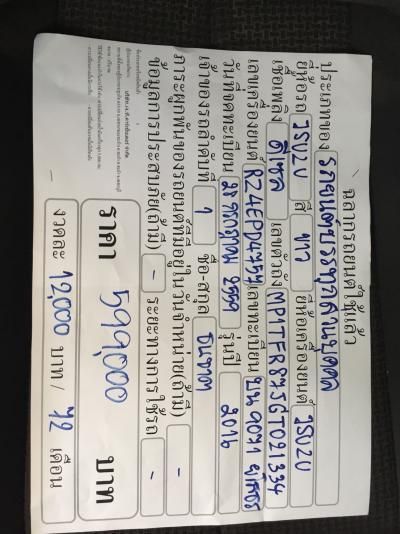 ฉลากรถยนต์ใช้แล้ว
ประเภทของ รถยนต์บรรทุกส่วนบุคคล
ยี่ห้อรถ ISUZU สี เทา ยี่ห้อเครื่องยนต์ ISUZU
เชื้อเพลิง ดีเซล เลขตัวถัง MP1TFR87JGT021334
เลขเครื่องยนต์ RZ4EPD4757 เลขทะเบียน 9071
วันที่จดทะเบียน มกราคม 2559 รุ่นปี 2016
เจ้าของรถลำดับที่ 1 ชื่อ-สกุล ธนชาต
ภาระผูกพันของรถยนต์ที่มีอยู่ในวันจำหน่าย(ถ้ามี) -
ข้อมูลการประสบภัย(ถ้ามี) - ระยะทางการใช้รถ -
ราคา 599,000 บาท
งวดละ 12,000 บาท / 72 เดือน